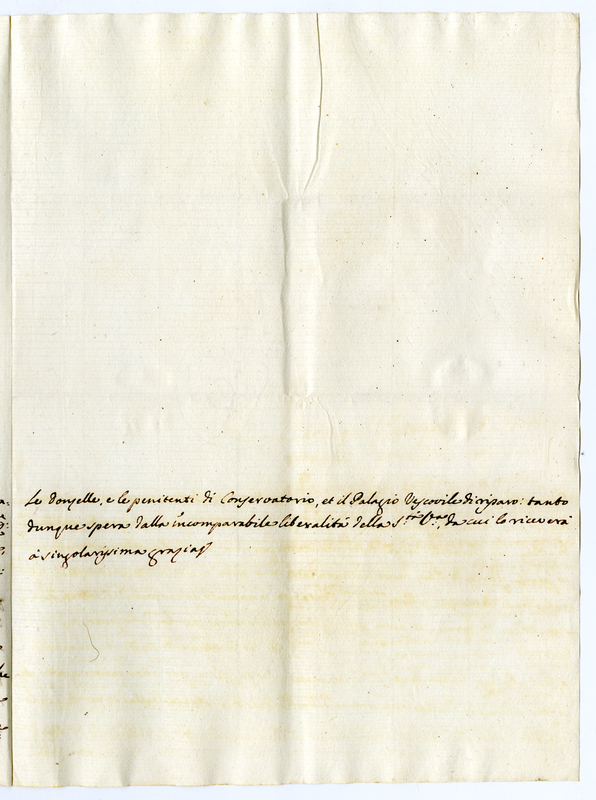 Le Donzelle, e le penitenti di Conservatorio, et il Palazio Vescovile di riparo: tanto
dunque spera dalla incomparabile liberalità della S.tà V.ra, da cui lo riceverà
à singolarissima grazia